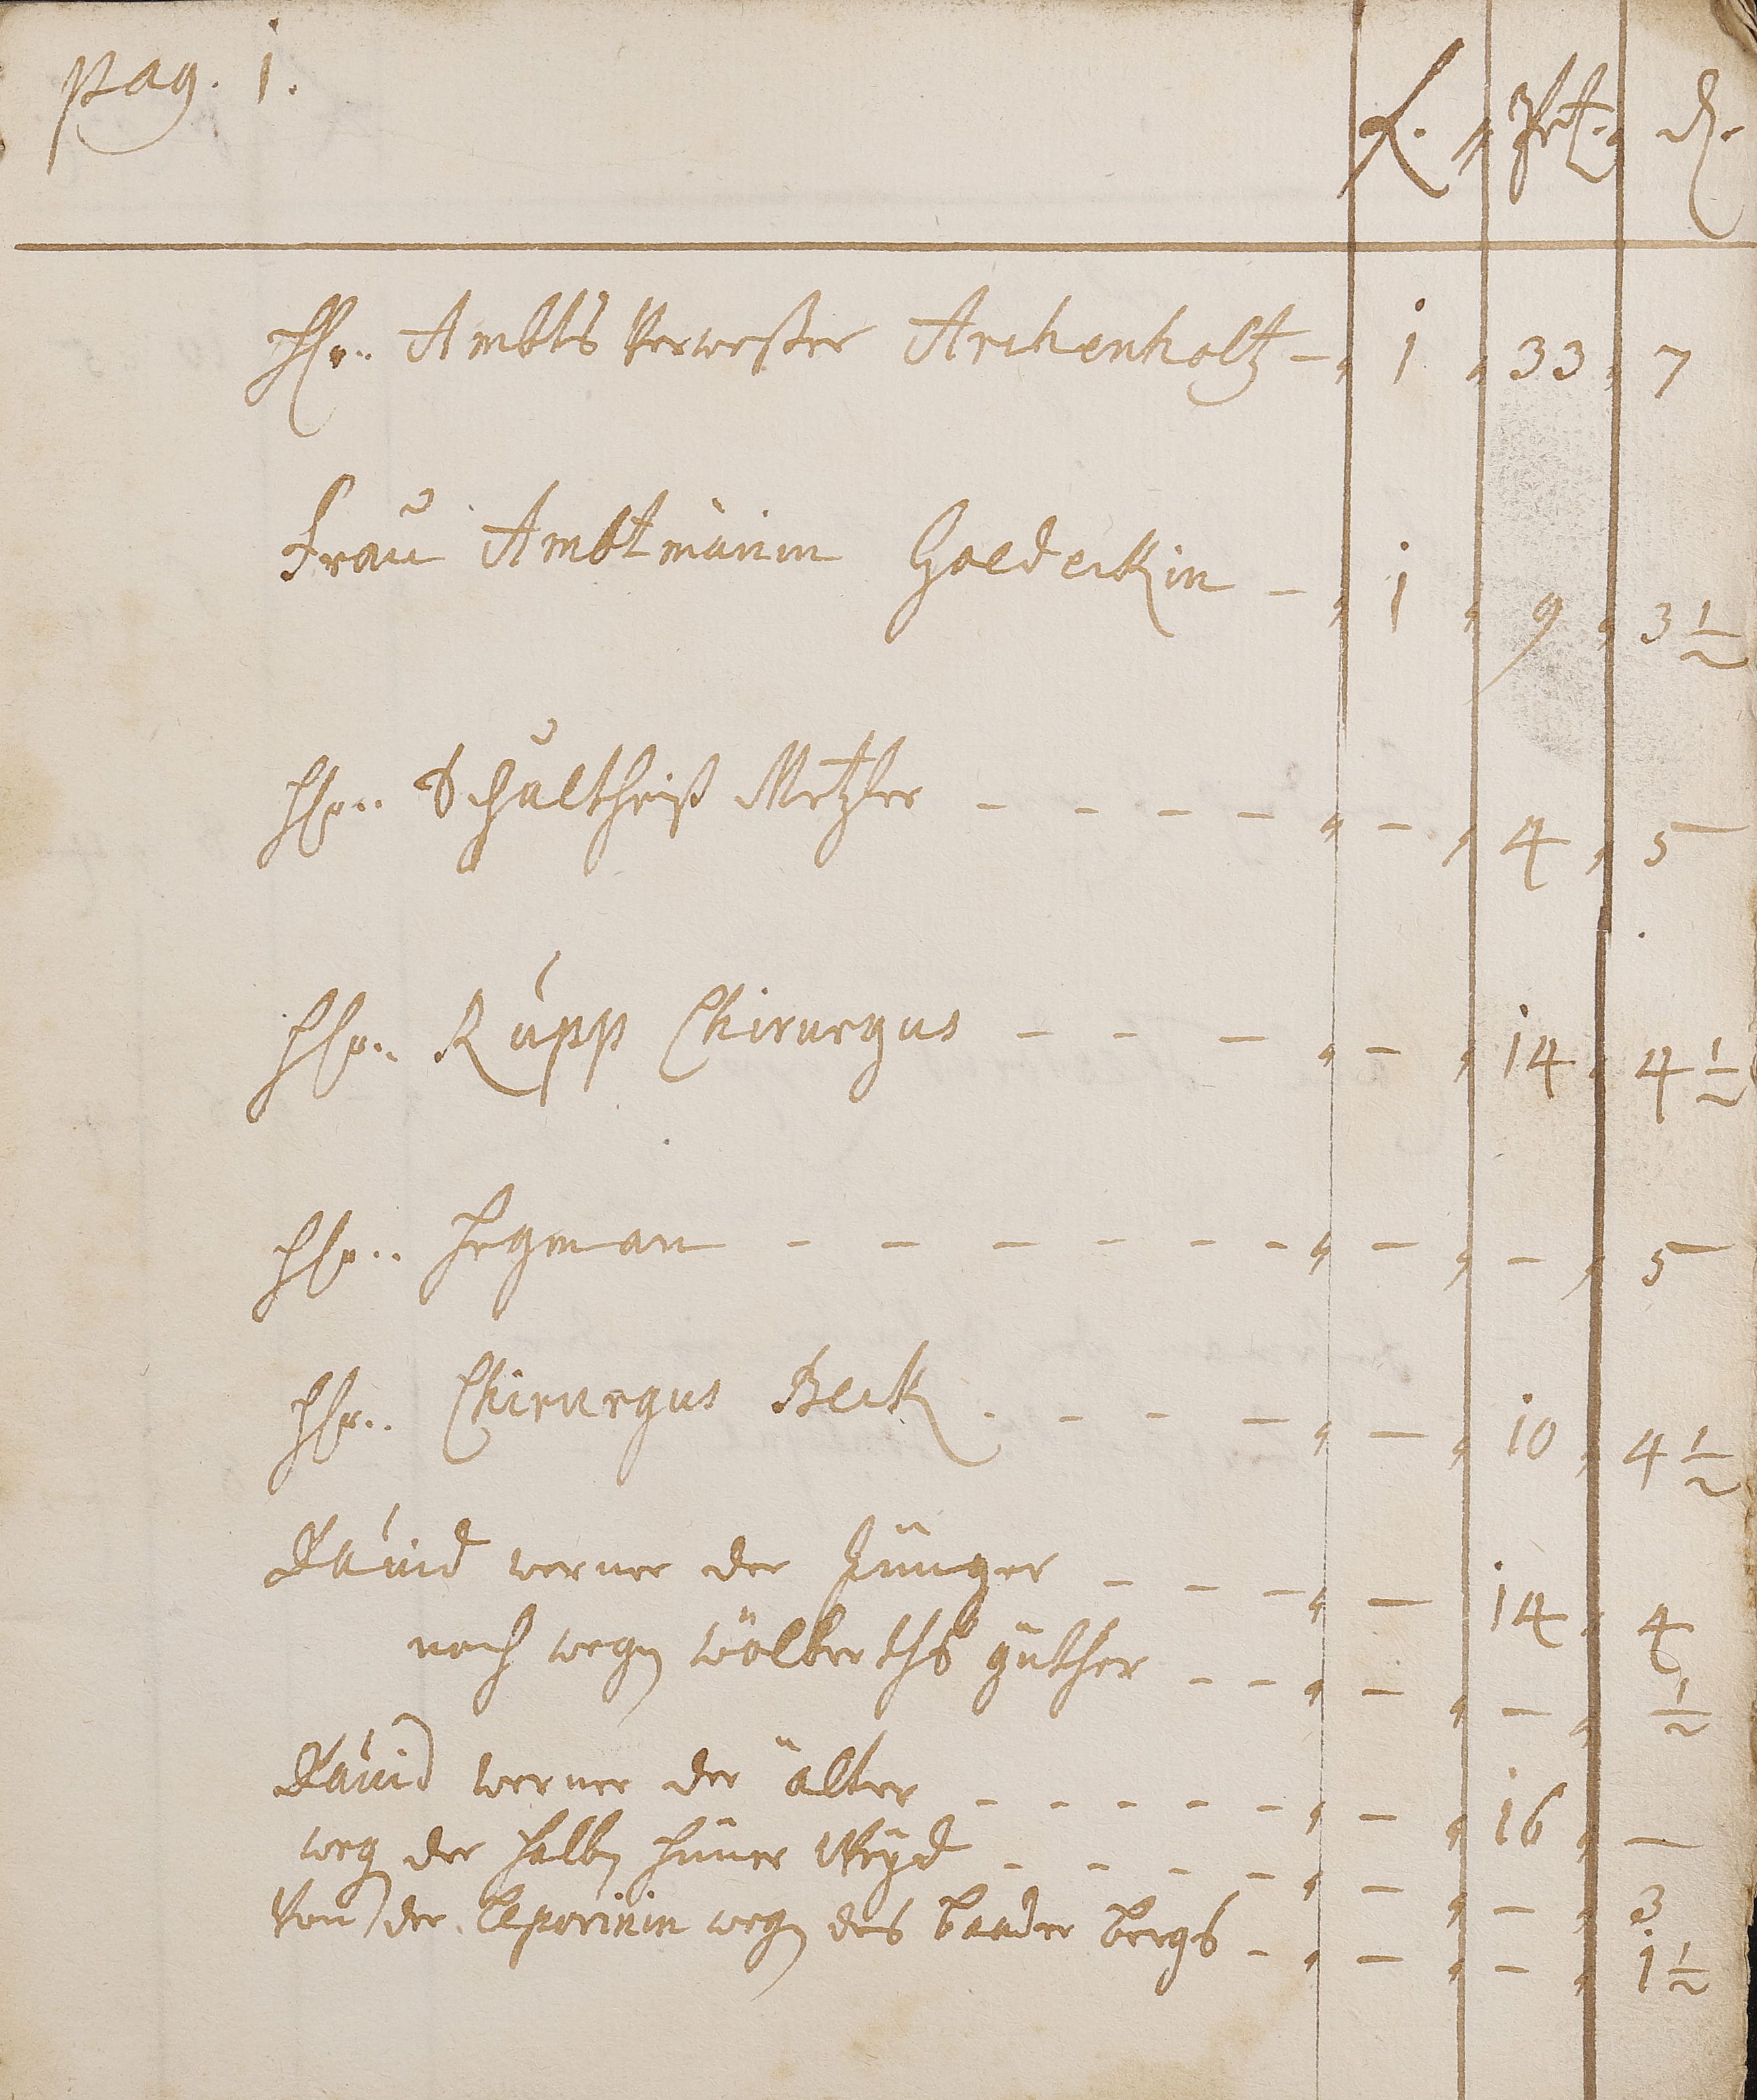 Pag. 1.
fl. „ xrt. „ d.
Hr. Ambts Verweßer Archenholtz – „ 1 „ 33 „ 7
Frau Ambtmänin Goldeckin – „ 1 „ 9 „ 3 1/2
Hr. Schultheiß Metzler – – – – „ – „ 4 „ 5
Hr. Rupp Chirurgus – – – „ – „ 14 „ 4 1/2
Hr. Hegman – – – – – – „ – „ – „ 5
Hr. Chirurgus Beck – – – – „ – „ 10 „ 4 1/2
David werner der Jünger – – – „ – 14 „ 4
noch wegen wölberths güther – – „ – „ – „ 1/2
David werner der älter – – – – – „ – „ 16 „ –
weg der halben hüner Weyd – – – – „ – „ – „ 3
Von der Leporinin wegen des baader bergs – „ – „ – „ 1 1/2